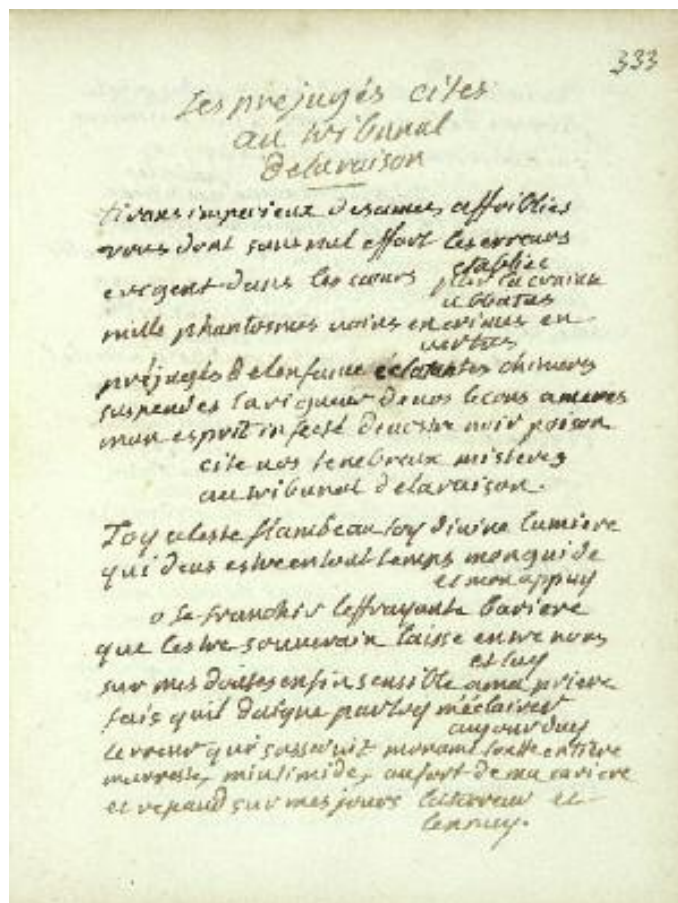 333
Les prejugés cites
au tribunal
delaraison
tirans imperieux desames affoiblies
vous dont sans nul effort les erreurs
etablies
erigent dans les cœurs par la crainte
abbatus
mille phantosmes vains en crimes en
vertus
préjugés delenfance éclatantes chimeres
suspendes la rigueur denos lecons ameres
mon esprit infecté devostre noir poison
cite vos tenebreux misteres
au tribunal delaraison.
Toy celeste flambeau toy divine lumiere
qui dois estre entout temps monguide
et mon appuy
ose franchir leffrayante bariere
que lestre souverain laisse entre nous
et luy
sur mes doutes enfin sensible ama priere
fais quil daigne partoy m'éclairer
aujourduy
lerreur qui sasservit moname toutte entiere
marreste, mintimide, aufort de ma cariere
et repand sur mes jours laterreur et
lennuy.